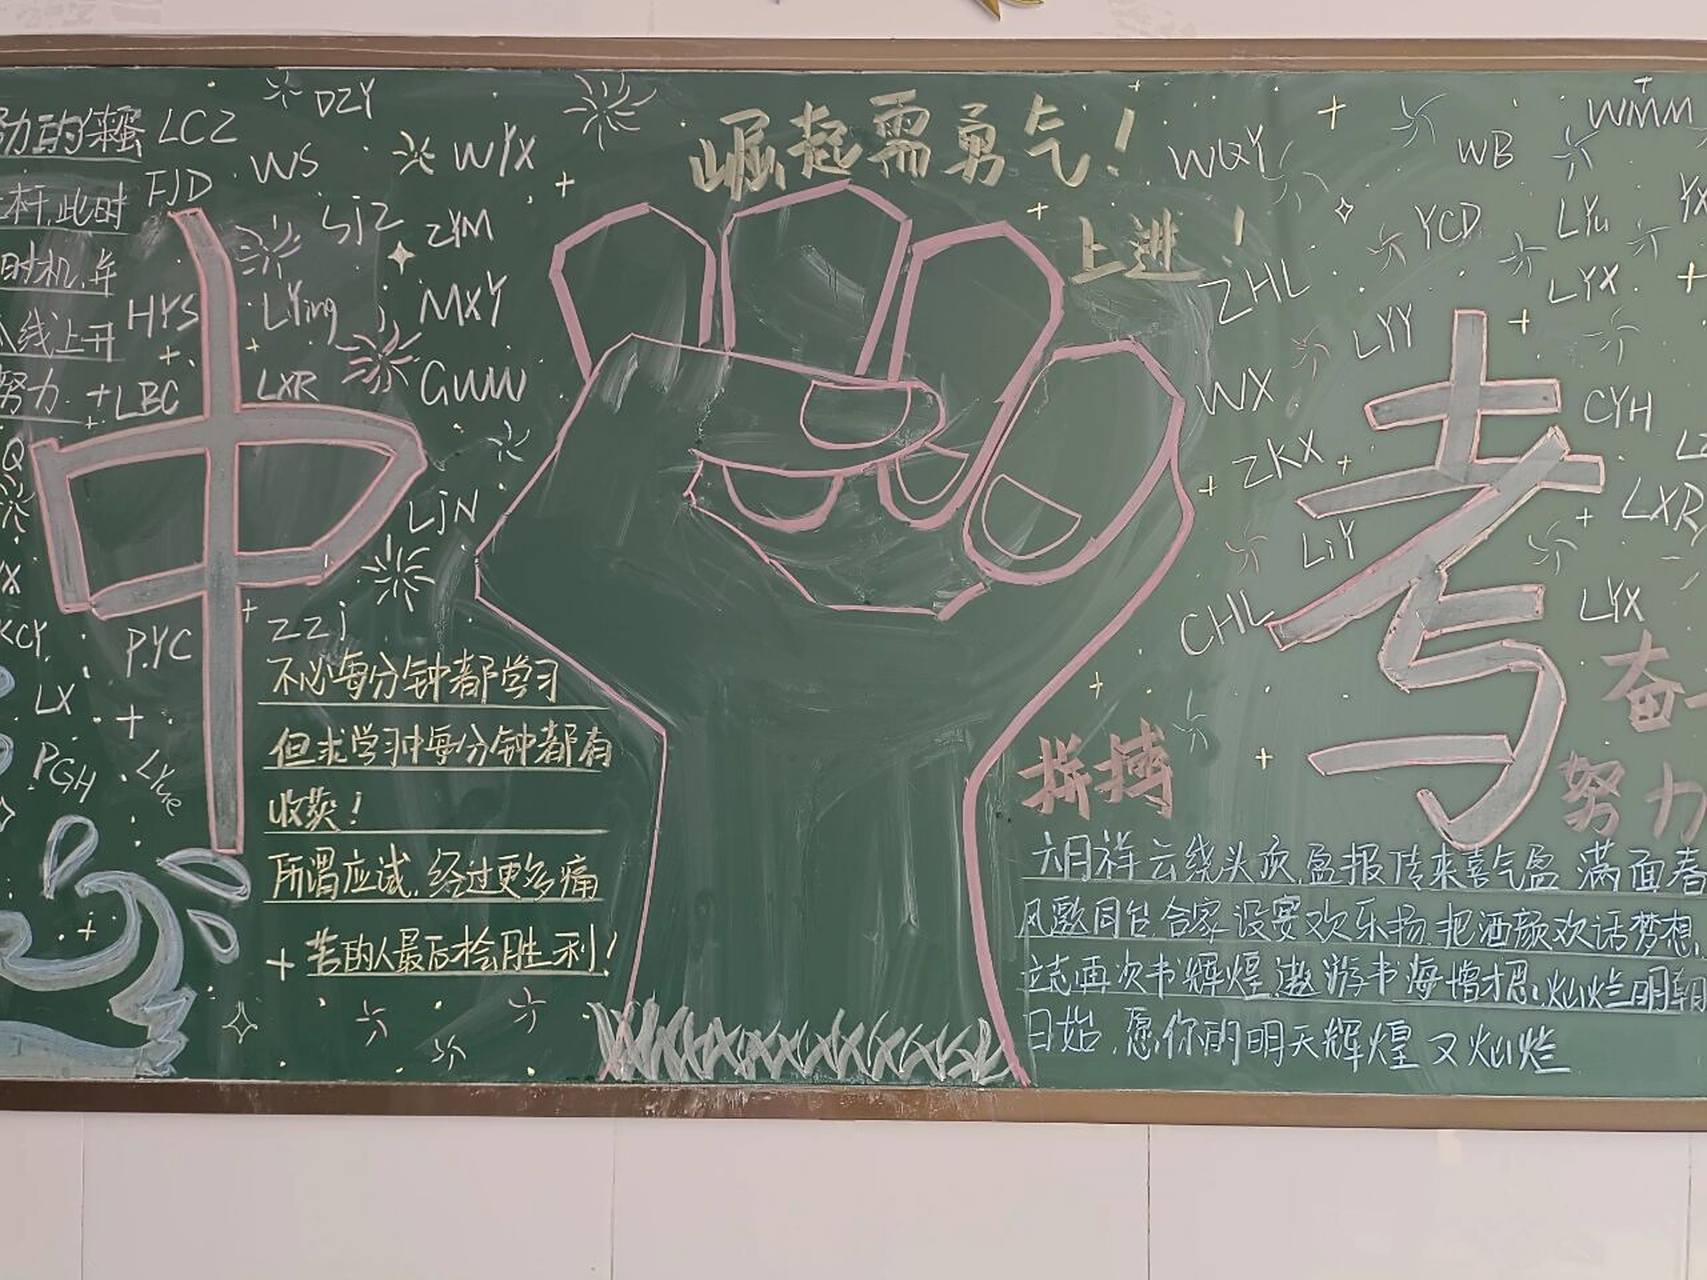 崛起需勇气！
上进！
中
考
DZY
LCZ
WS
WYX
FJD
SJZ
ZYM
杆,此时
时机,并
线上开
努力
HYS
LYing
MXY
LBC
LXR
GWW
LJN
KCY
PYC
ZZj
LX
PGH
LYue
不必每分钟都学习
但求学习中每分钟都有
收获！
所谓应试,经过更多痛
苦的人最后桧会胜利！
WQY
WB
WMM
YCD
LYu
ZHL
LYX
LYY
WX
CYH
ZKX
LXR
LiY
LYX
CHL
拼搏
奋
努力
六月祥云绕头顶,盈报传来喜气盈 满面春
风邀同住,合家设宴欢乐扬,把酒颜欢话梦想,
立志再次书辉煌,遨游书海增才思,灿烂明朝
日始,愿你的明天辉煌又灿烂